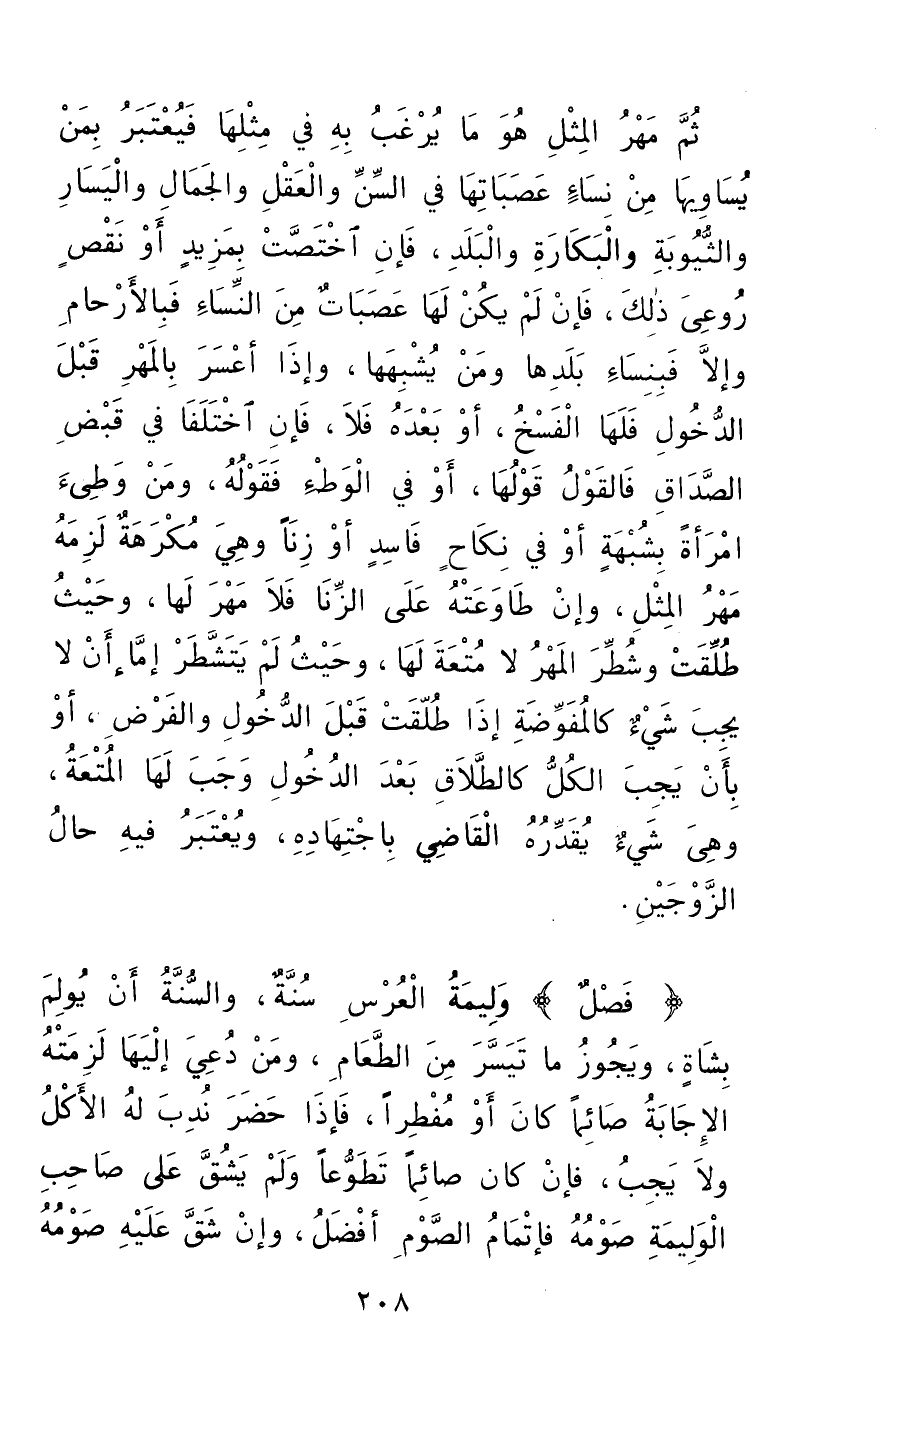 ثُمَّ مَهْرُ المِثْلِ هُوَ مَا يُرْغَبُ بِهِ فِي مِثْلِهَا فَيُعْتَبَرُ بِمَنْ
يُسَاوِيهَا مِنْ نِسَاءٍ عَصَبَاتِهَا فِي السِّنِّ والْعَقْلِ والجَمَالِ والْيَسَارِ
والثُّيُوبَةِ والْبَكَارَةِ والْبَلَدِ ، فَإنِ ٱخْتَصَّتْ بِمَزِيدٍ أَوْ نَقْصٍ
رُوعِىَ ذٰلِكَ ، فَإنْ لَمْ يكُنْ لَهَا عَصَبَاتٌ مِنَ النِّسَاءِ فَبِالأَرْحامِ
وإلاَّ فَبِنِسَاءِ بَلَدِها ومَنْ يُشْبِهَها ، وإذَا أعْسَرَ بِالمَهْرِ قَبْلَ
الدُّخُولِ فَلَهَا الْفَسْخُ ، أوْ بَعْدَهُ فَلاَ ، فَإنِ ٱخْتَلَفَا فِي قَبْضِ
الصَّدَاقِ فَالقَوْلُ قَوْلُهَا ، أَوْ فِي الْوَطْءِ فَقَوْلُهُ ، ومَنْ وَطِىءَ
امْرَأةً بِشُبْهَةٍ أوْ فِي نِكَاحٍ فَاسِدٍ أوْ زِنَاً وهِيَ مُكْرَهَةٌ لَزِمَهُ
مَهْرُ المِثْلِ ، وإنْ طَاوَعَتْهُ عَلَى الزِّنَا فَلاَ مَهْرَ لَها ، وحَيْثُ
طُلِّقَتْ وشُطِّرَ المَهْرُ لا مُتْعَةَ لَهَا ، وحَيْثُ لَمْ يَتَشَطَّرْ إمَّا أَنْ لا
يجِبَ شَيْءٌ كالمُفَوِّضَةِ إذَا طُلّقَتْ قَبْلَ الدُّخُولِ والفَرْضِ ، أوْ
بِأَنْ يَجِبَ الكُلُّ كالطَّلَاقِ بَعْدَ الدُخُولِ وَجَبَ لَهَا المُتْعَةُ ،
وهِىَ شَيءٌ يُقَدِّرُهُ الْقَاضِي بِاجْتِهَادِهِ ، ويُعْتَبَرُ فيهِ حالُ
الزَّوْجَيْنِ .
﴿ فَصْلٌ ﴾ وَلِيمَةُ الْعُرْسِ سُنَّةٌ ، والسُّنَّةُ أَنْ يُولِمَ
بِشَاةٍ ، ويَجُوزُ ما تَيَسَّرَ مِنَ الطَّعَامِ ، ومَنْ دُعِيَ إلَيْهَا لَزِمَتْهُ
الإجَابَةُ صَائِماً كانَ أَوْ مُفْطِراً ، فَإذَا حَضَرَ نُدِبَ لهُ الأَكْلُ
ولاَ يَجِبُ ، فإنْ كان صائِماً تَطَوُّعاً وَلَمْ يَشُقَّ عَلى صَاحِبِ
الْوَلِيمَةِ صَوْمُهُ فإتْمَامُ الصَّوْمِ أفْضَلُ ، وإنْ شَقَّ عَلَيْهِ صَوْمُهُ
٢٠٨